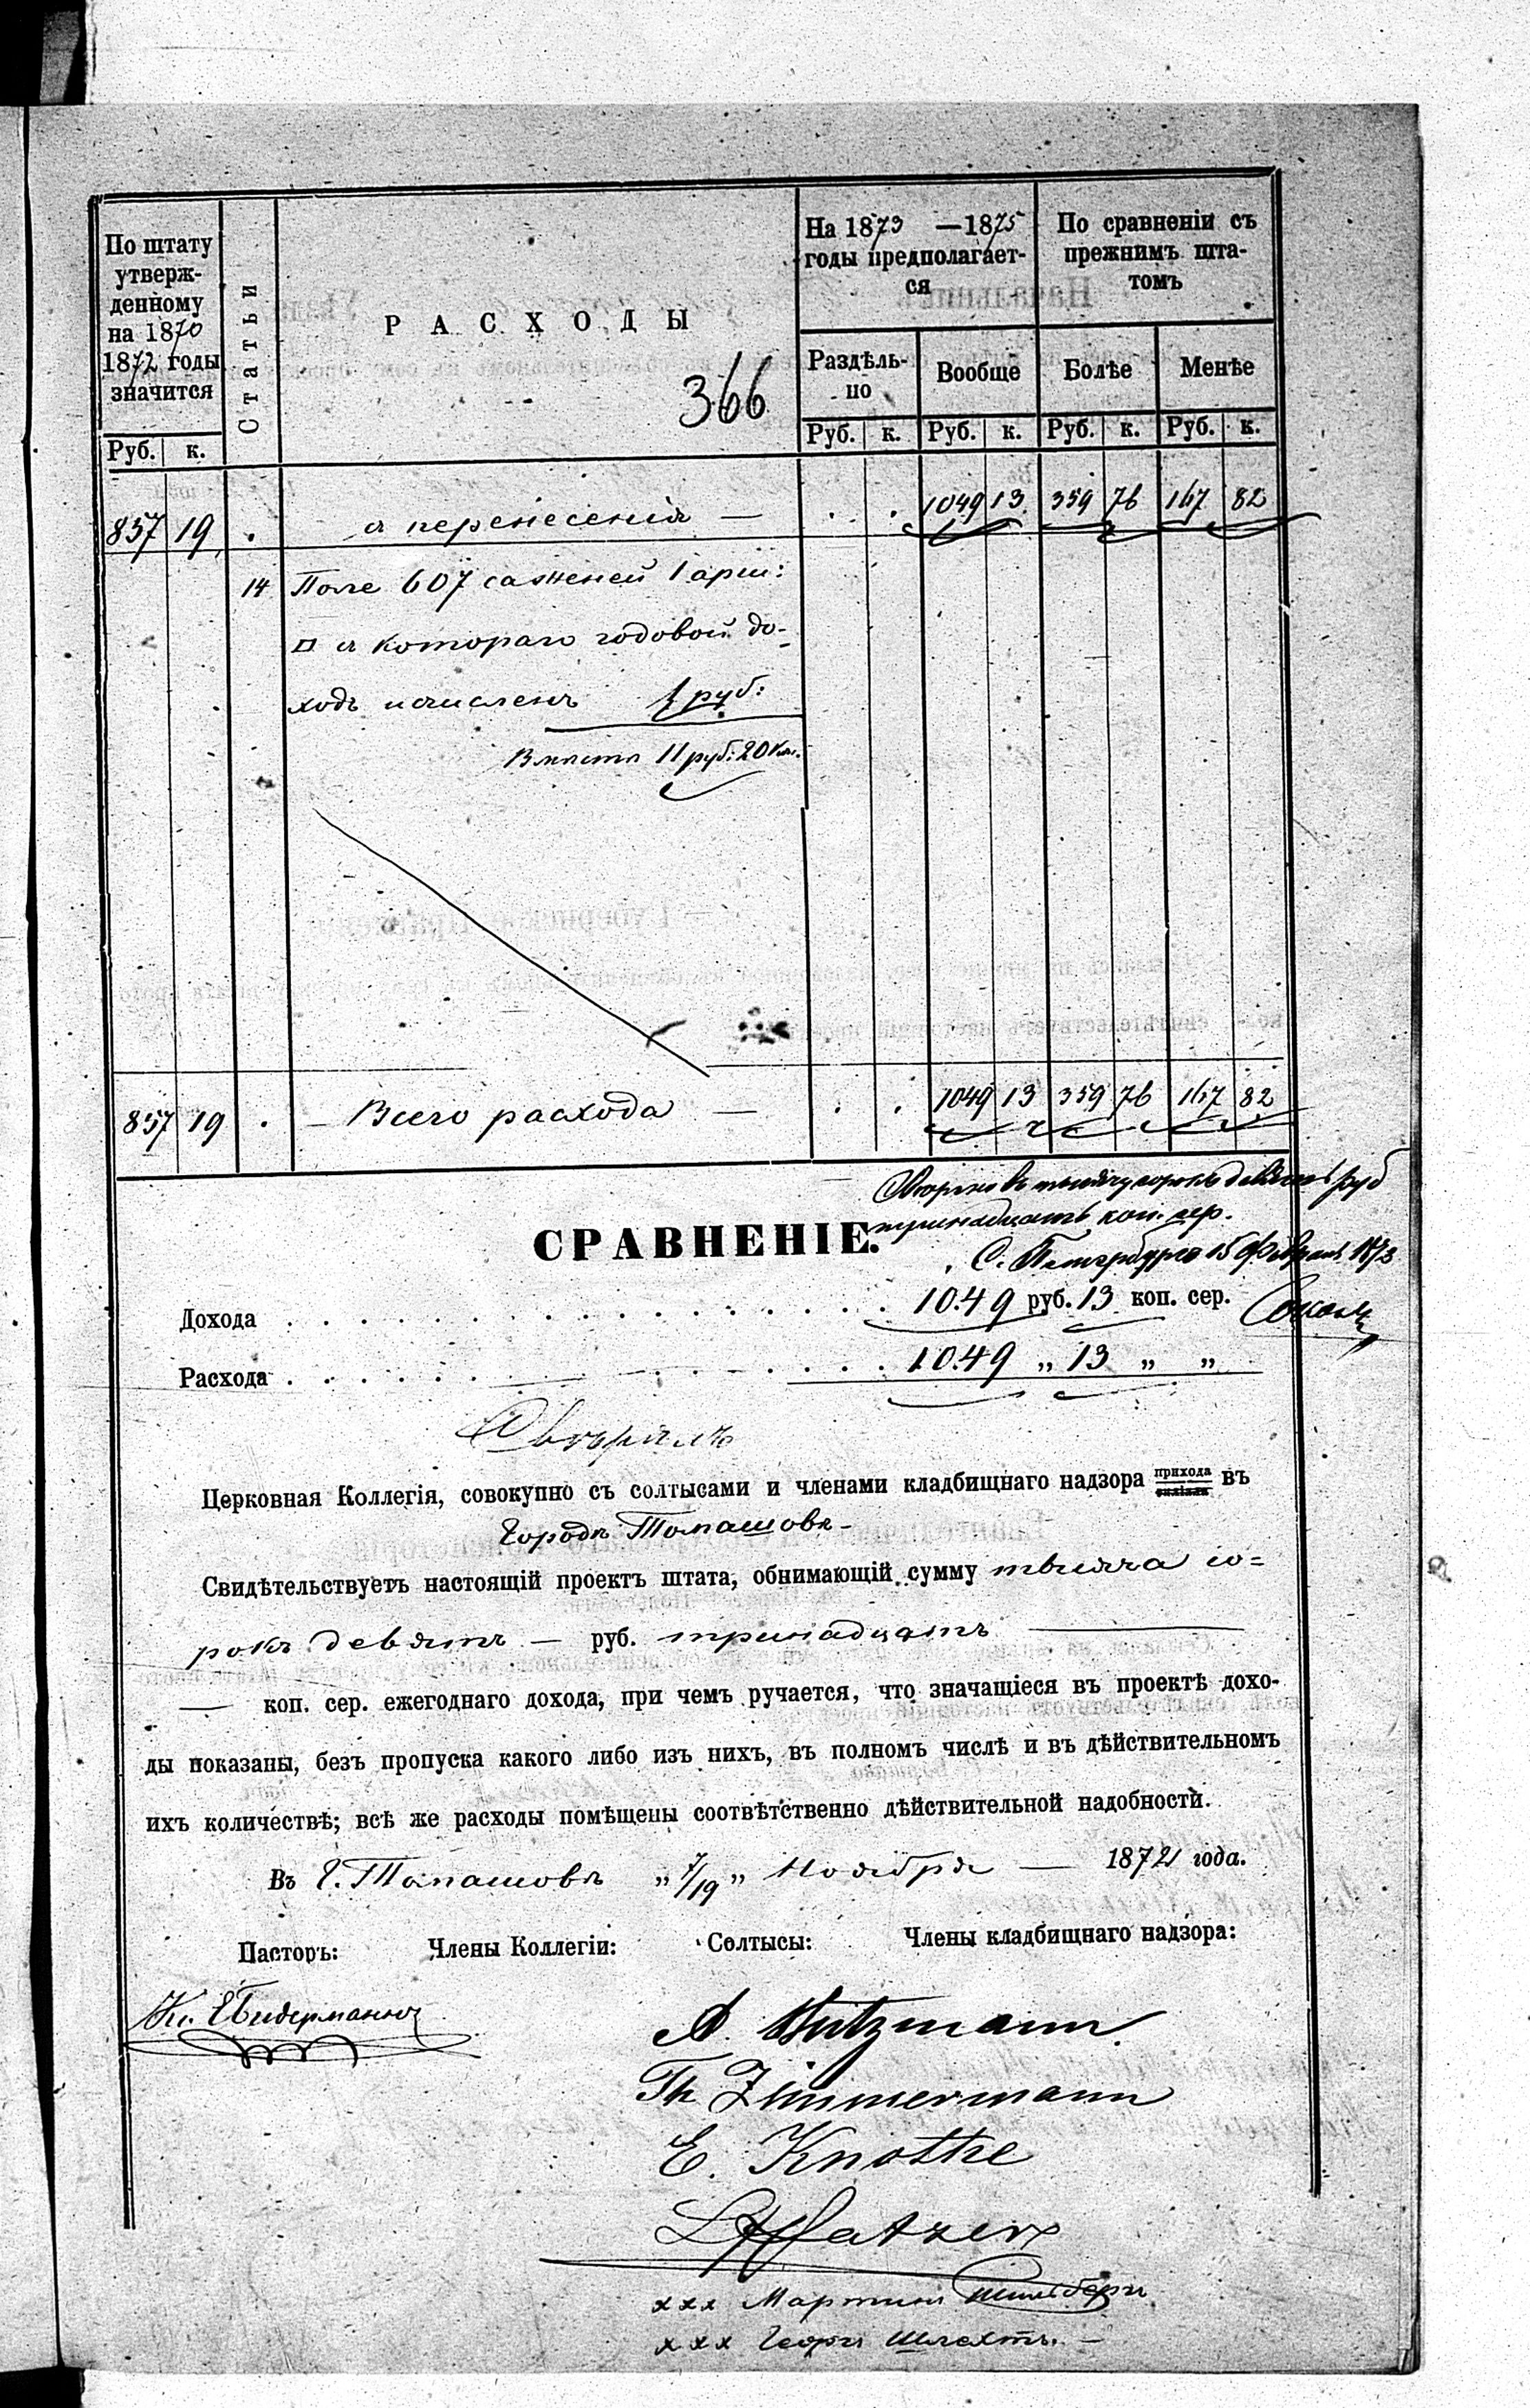 По штату
утверж-
денному
на 1870
1872 годы
значится
Статьи
РАСХОДЫ
366
На 1873 —1875
годы предполагает-
ся
По сравненіи съ
прежнимъ шта-
томъ
Раздѣль-
но
Вообще
Болѣе
Менѣе
Руб. к.
Руб. к. Руб. к. Руб. к. Руб. к.
857 19 . съ перенесенія — . . 1049 13 359 76 167 82
14 Поле 607 саженей 1 арш:
□ съ котораго годовой до-
ходъ исчисленъ 1 руб:
Вмѣсто 11 руб: 20 коп.
857 19 . — Всего расхода — . . 1049 13 359 76 167 82
въ тысячу сорокъ девять руб
тринадцать коп. сер.
С. Петербургъ 15 Февраля 1873
СРАВНЕНІЕ.
Дохода . . . . . 1049 руб. 13 коп. сер.
Расхода . . . . . 1049 „ 13 „ „
Церковная Коллегія, совокупно съ солтысами и членами кладбищнаго надзора прихода филіала въ
Городѣ Томашовѣ-
Свидѣтельствуетъ настоящій проектъ штата, обнимающій сумму тысяча со=
рокъ девять — руб. тринадцать —
— коп. сер. ежегоднаго дохода, при чемъ ручается, что значащіеся въ проектѣ дохо-
ды показаны, безъ пропуска какого либо изъ нихъ, въ полномъ числѣ и въ дѣйствительномъ
ихъ количествѣ; всѣ же расходы помѣщены соотвѣтственно дѣйствительной надобности.
Въ г. Томашовѣ „ 7/19 „ Ноября — 1872 года.
Пасторъ: Члены Коллегіи: Солтысы: Члены кладбищнаго надзора:
Бидерманнъ
A.
Th Zimmermann
E. Knothe
xxx Мартинъ
xxx Георгъ Шлехтъ. —